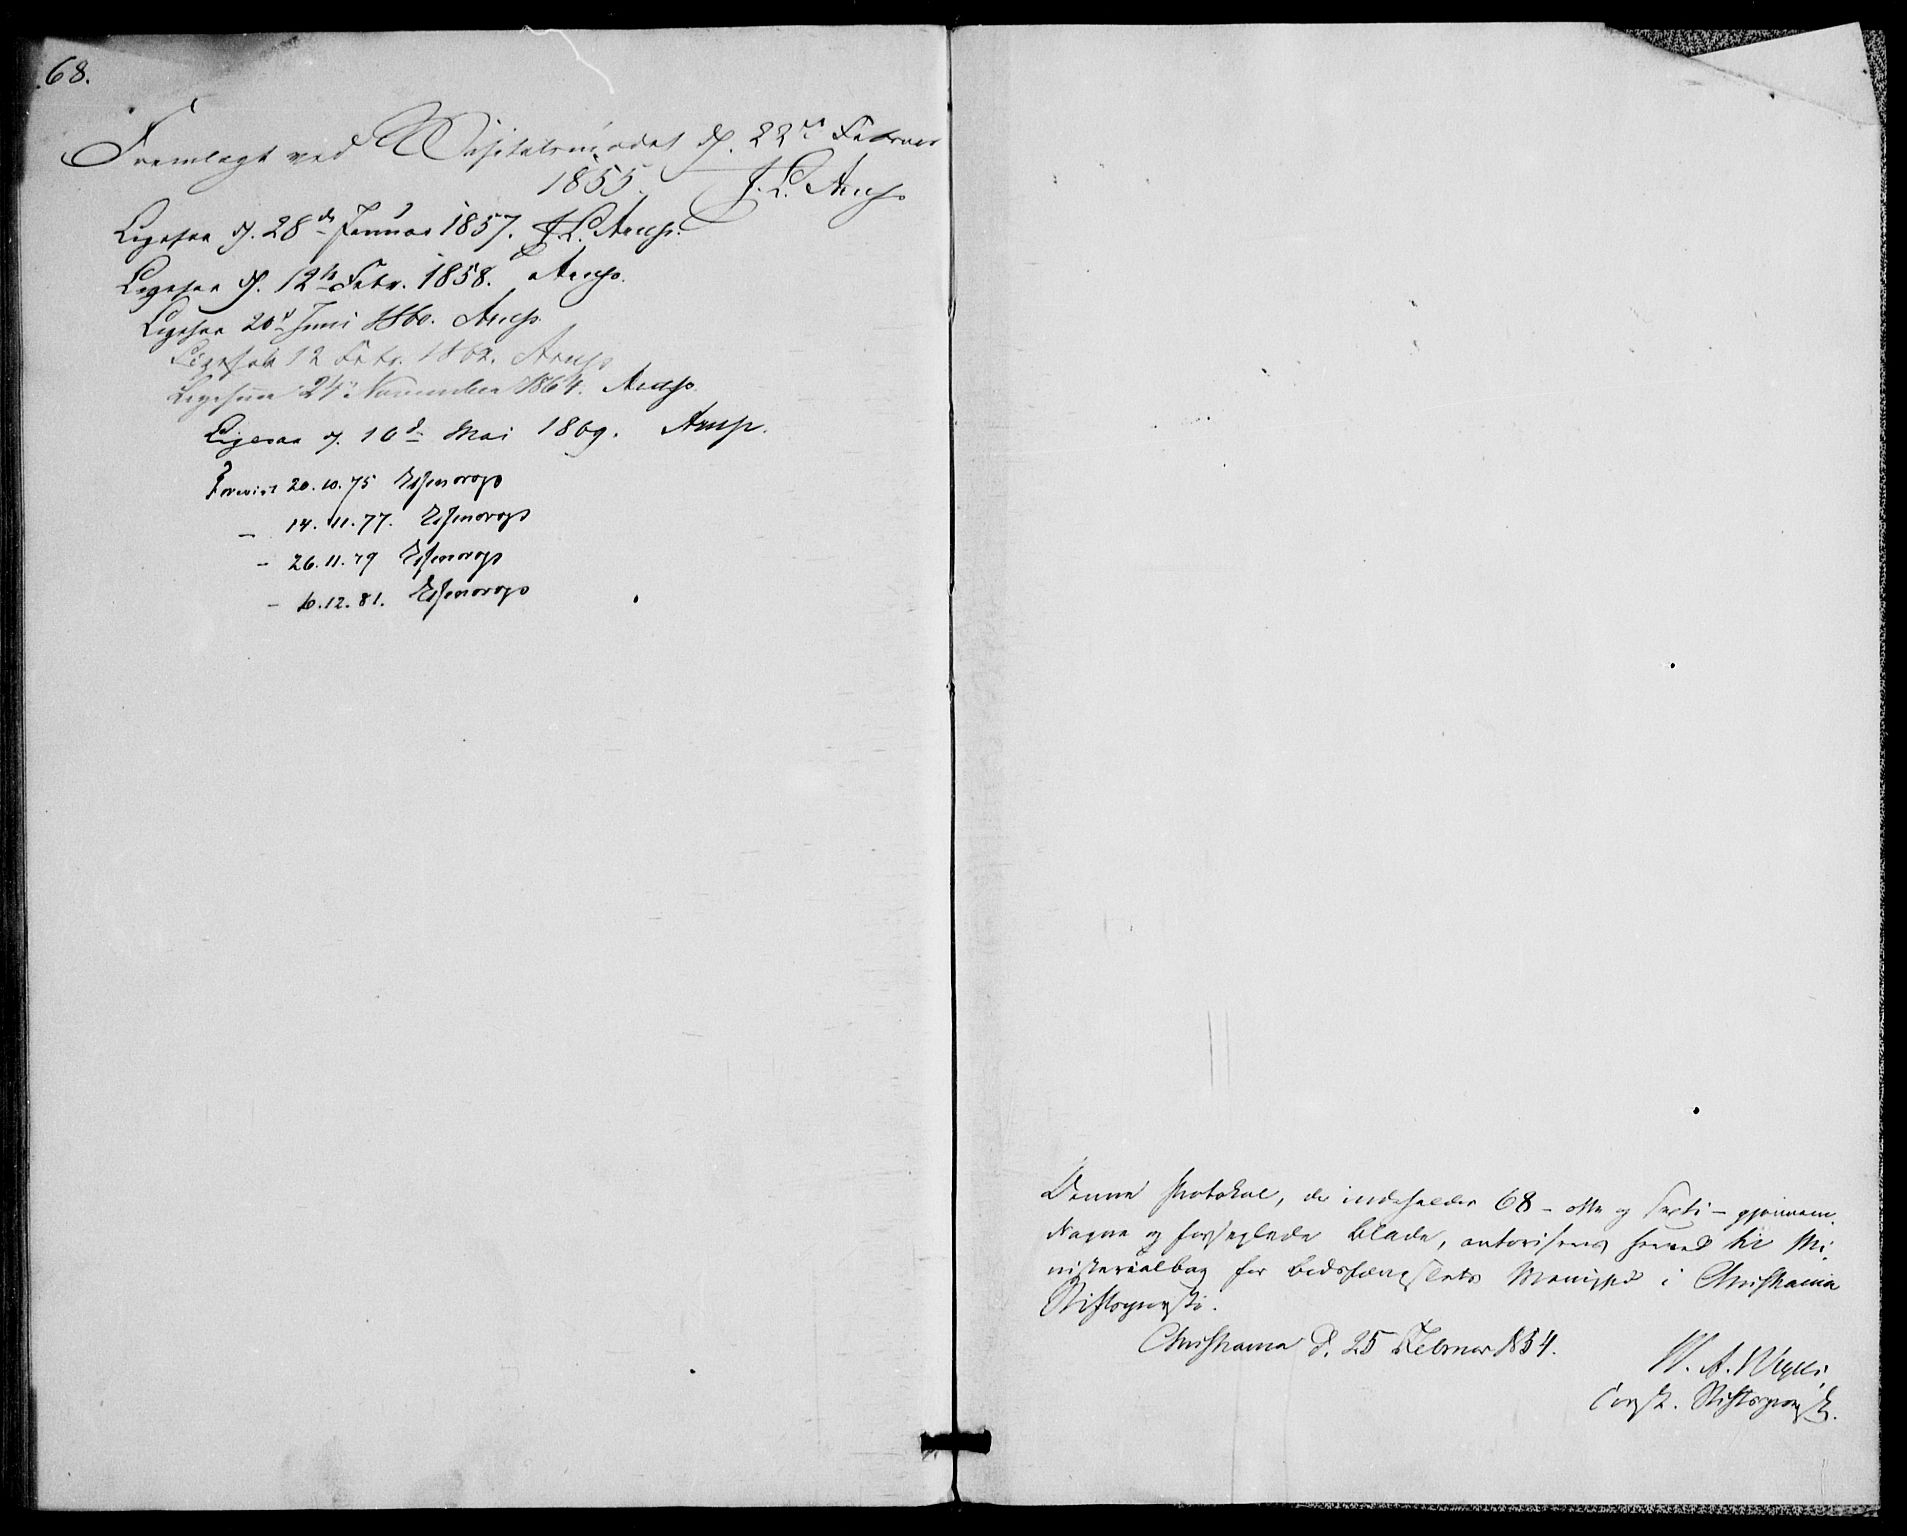 68.
Fremlagt ved Visitatsmødet d. 22de Februar
1855. J. L. Arup
Ligesaa d. 28de Januar 1857. J. L. Arup.
Ligesaa d. 12te Febr. 1858. Arup.
Ligesaa 20d Juni 1860. Arup.
Ligesaa 12 Febr. 1862. Arup
Ligesaa 24de November 1864. Arup.
Ligesaa d. 10de Mai 1869. Arup.
Forevist 20.10.75 Essendrop
– 14.11.77. Essendrop
– 26.11.79 Essendrop
– 6.12.81. Essendrop
Denne Protokol, der indeholder 68 – otte og sexti – gjennem-
dragne og forseglede Blade, autoriseres herved til Mi-
nisterialbog for Bodsfængslets Menighed i Christiania
Stiftsprovsti.
Christiania d. 25 Februar 1854.
W. A. Wexels
const. Stiftsprovst.